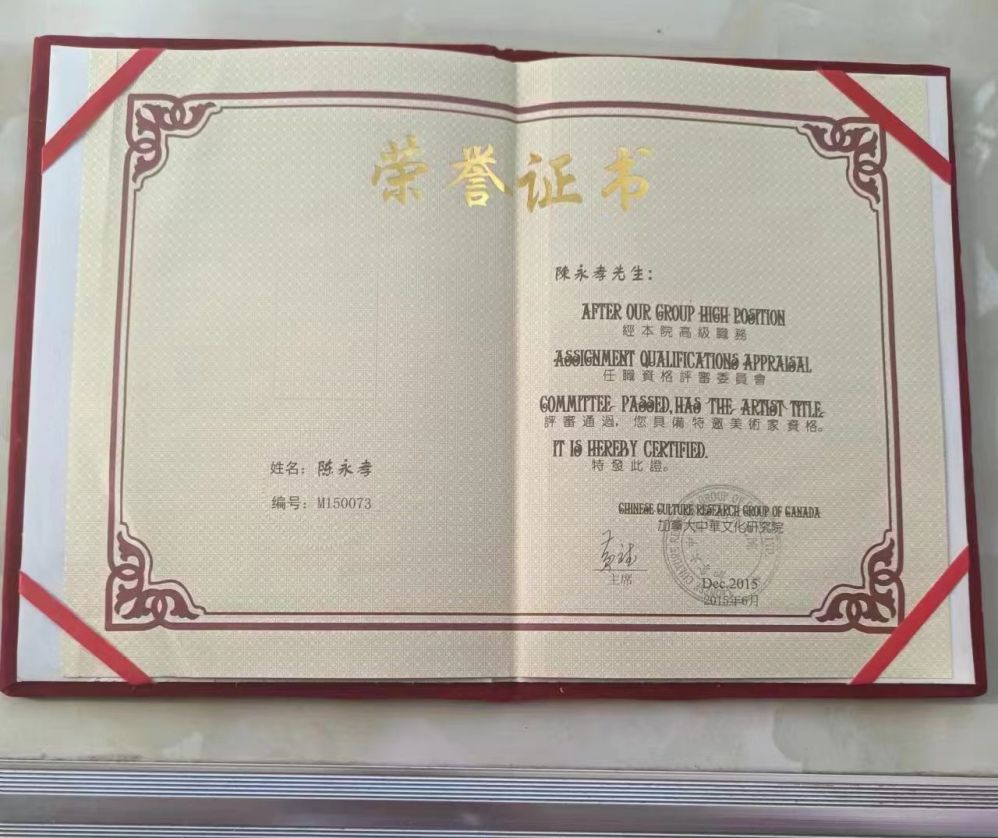 荣誉证书
姓名：陈永孝
编号：M150073
陳永孝先生：
AFTER OUR GROUP HIGH POSITION
經本院高級職務
ASSIGNMENT QUALIFICATIONS APPRAISAL
任職資格評審委員會
COMMITTEE PASSED, HAS THE ARTIST TITLE.
評審通過，您具備特邀美術家資格。
IT IS HEREBY CERTIFIED.
特發此證。
CHINESE CULTURE RESEARCH GROUP OF CANADA
加拿大中華文化研究院
主席
Dec.2015
2015年6月